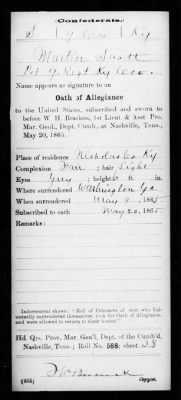 Confederate.
S | 9 Cav | Ky
Martin Scott
Pvt 9 Regt Ky Cav.
Name appears as signature to an
Oath of Allegiance
to the United States, subscribed and sworn to
before W. H. Bracken, 1st Lieut & Asst Pro.
Mar. Genl., Dept. Cumb., at Nashville, Tenn.,
May 20, 1865.
Place of residence Nicholas Co Ky
Complexion Fair ; hair Light
Eyes Grey ; height 6 ft. in.
Where surrendered Washington Ga
When surrendered May 9, 1865
Subscribed to oath May 20, 1865.
Remarks:
Indorsement shows: "Roll of Prisoners of war, who Vol-
untarily surrendered themselves, took the Oath of Allegiance,
and were allowed to return to their homes."
Hd. Qrs. Prov. Mar. Gen'l, Dept. of the Cumb'd,
Nashville, Tenn.; Roll No. 588; sheet
(665) Copyist.